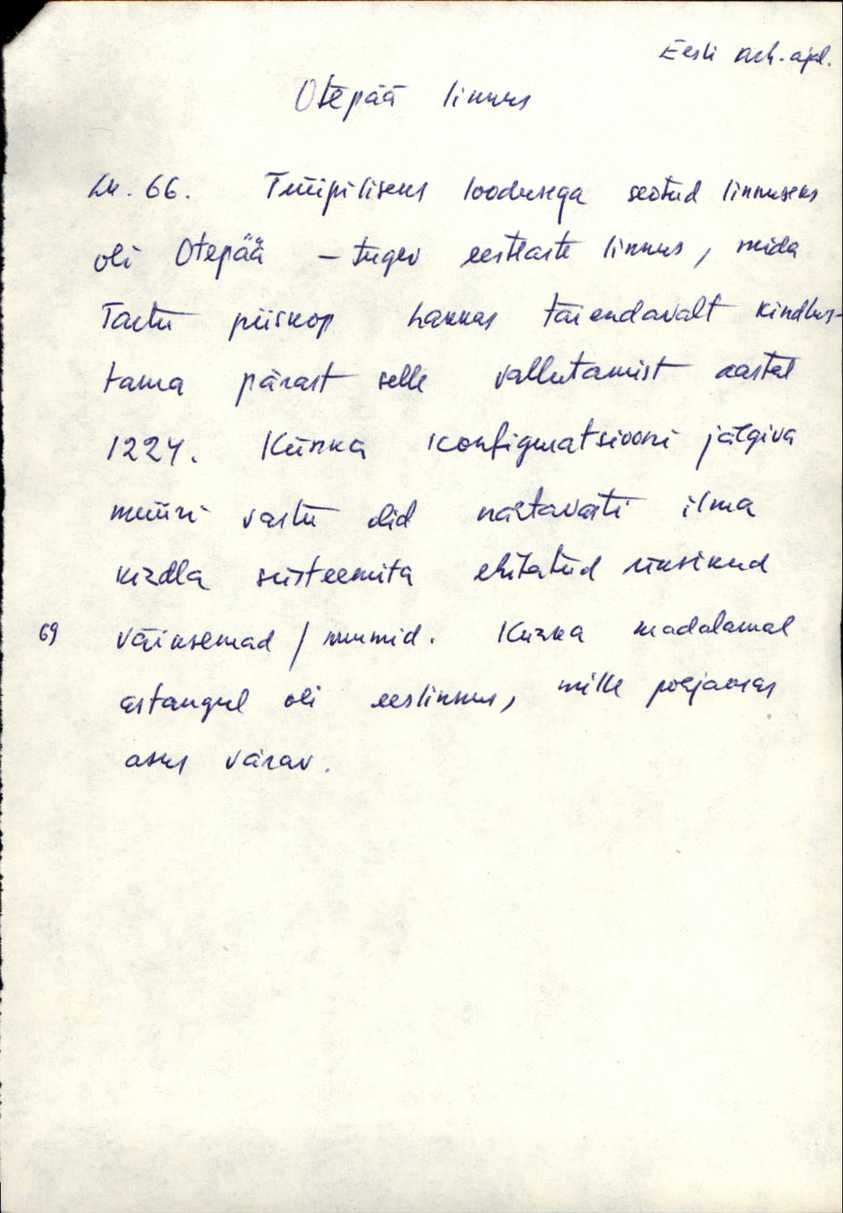 Eesti arh. ajal.
Otepää linnus
Lk. 66. Tüüpiliseks loodusega seotud linnuseks
oli Otepää – tugev eestlaste linnus, mida
Tartu piiskop hakkas täiendavalt kindlus-
tama pärast selle vallutamist aastal
1224. Künka konfiguratsiooni jälgiva
müüri vastu olid nähtavasti ilma
kindla süsteemita ehitatud üksikud
69 väiksemad / ruumid. Künka madalamal
astangul oli eeslinnus, mille põhjaosas
asus värav.